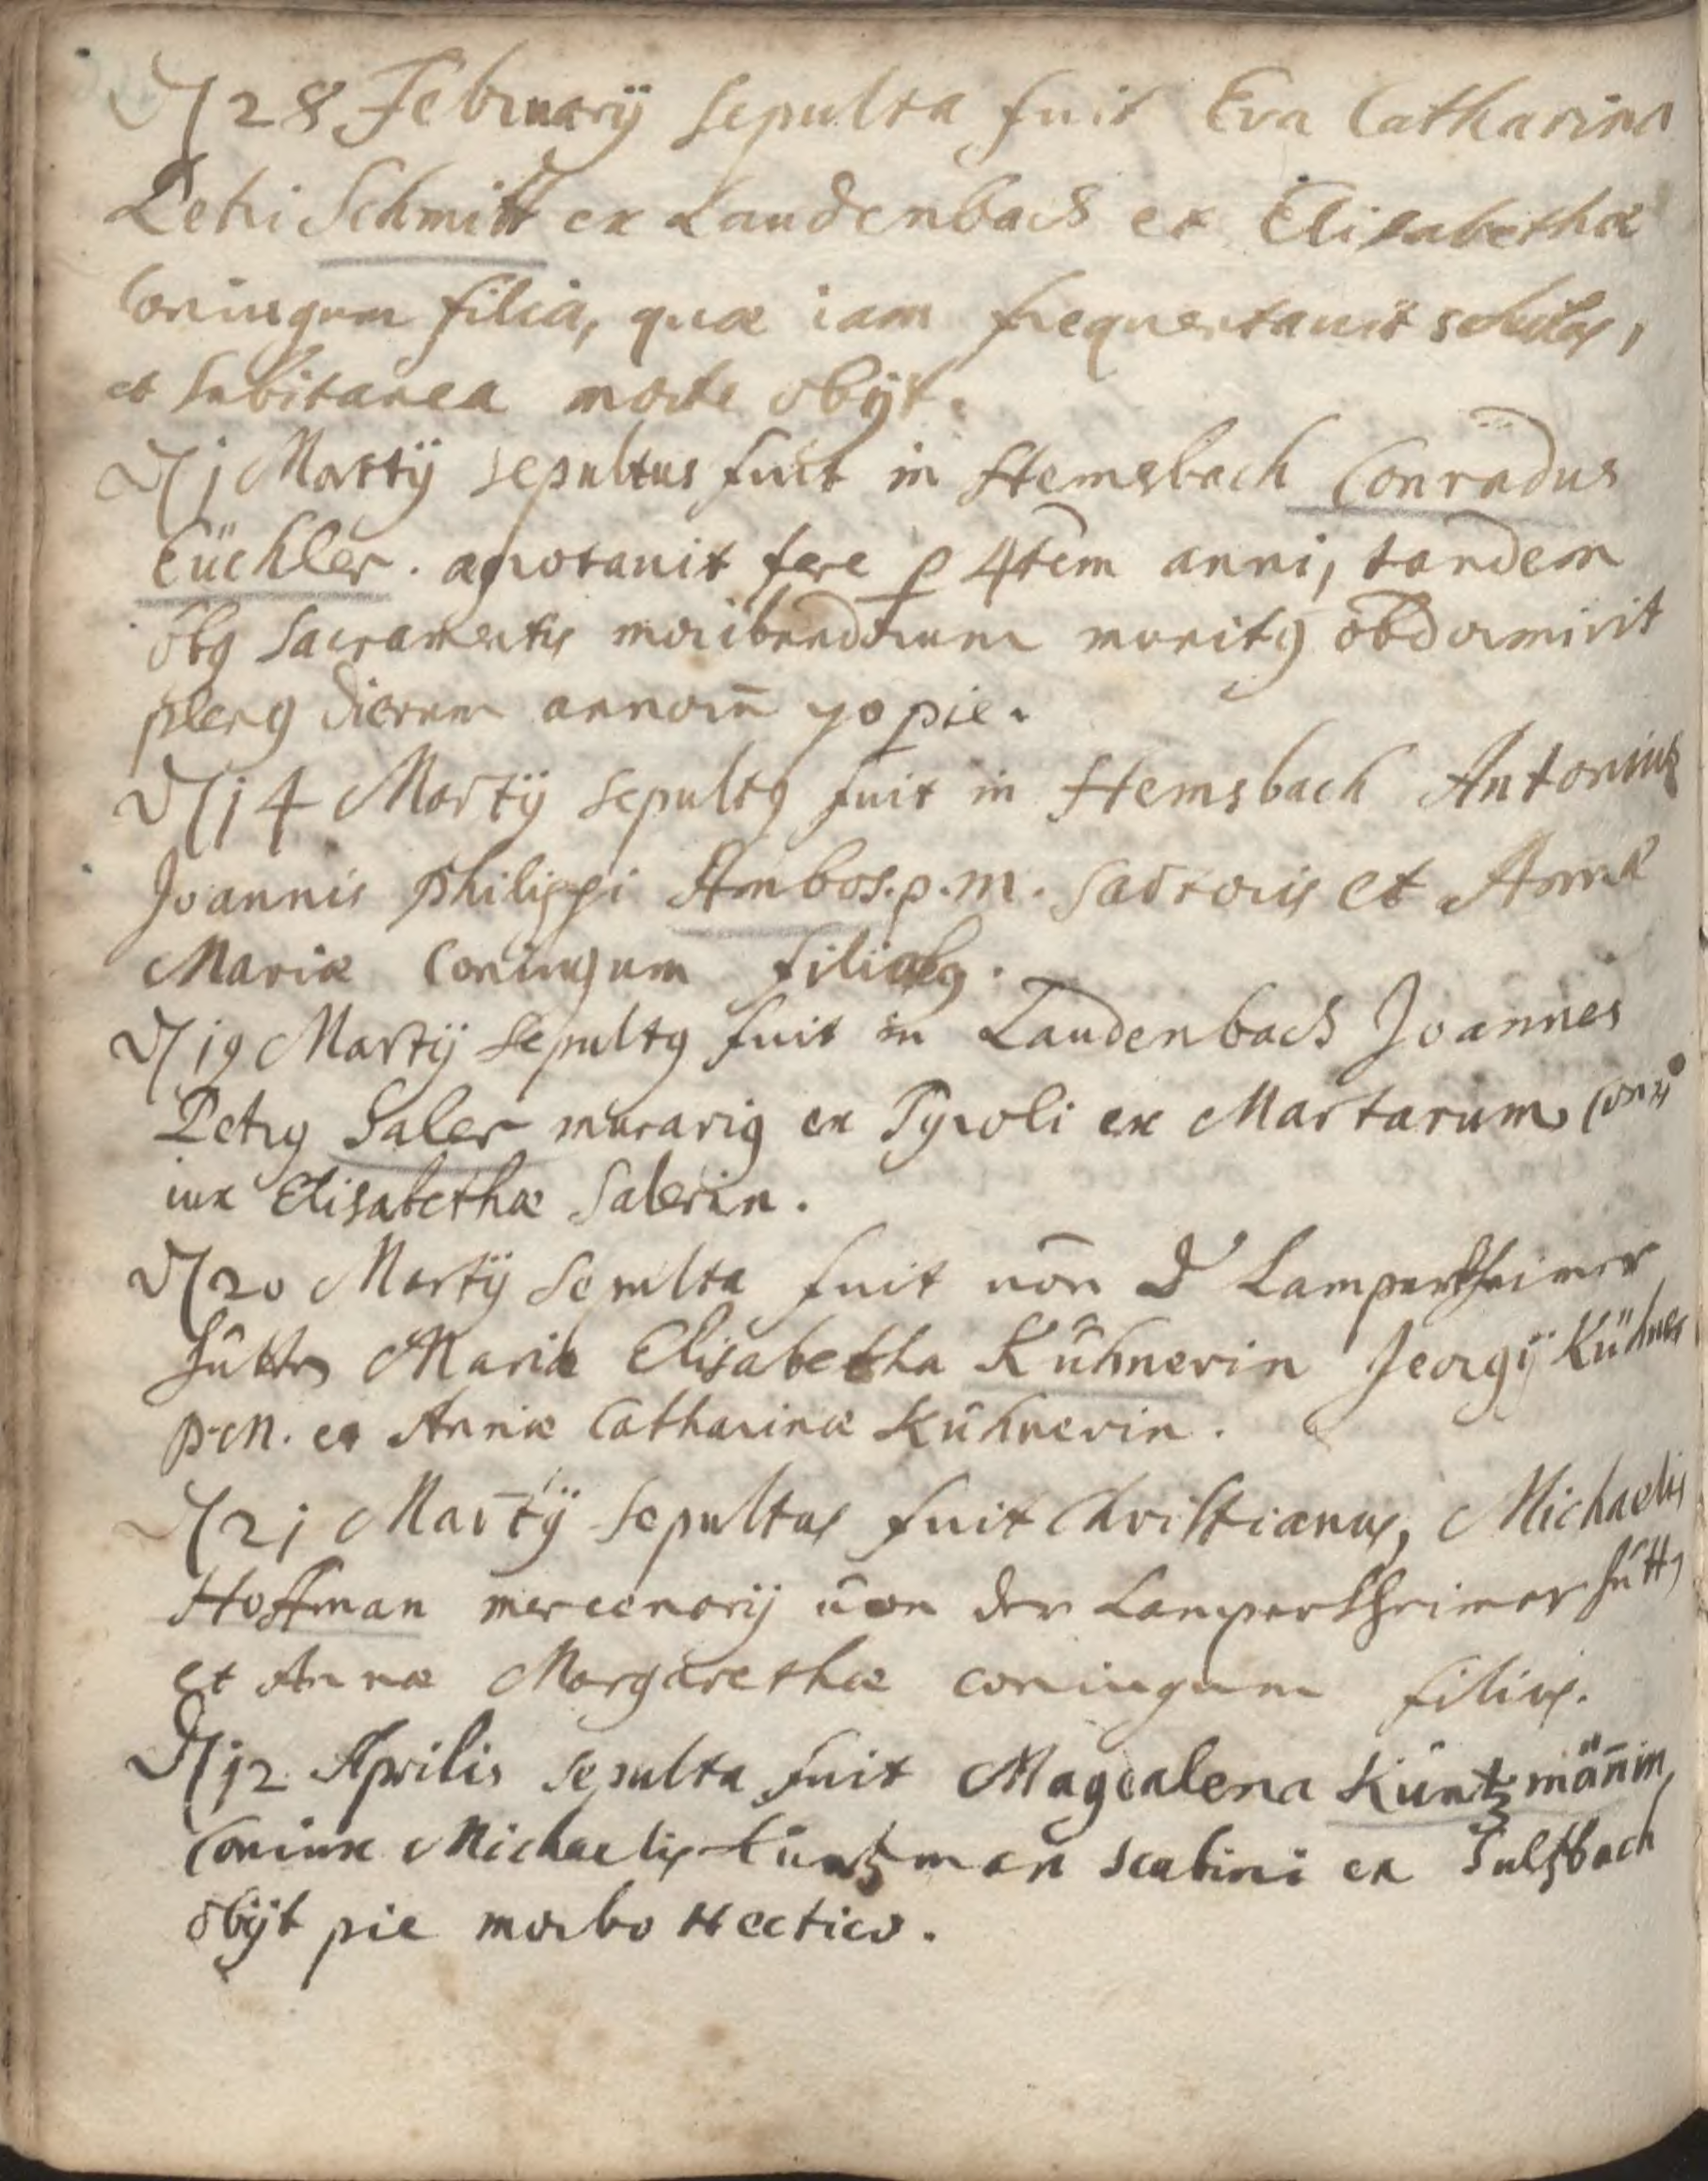 D 28 February sepulta fuit Eva Catharina
Petri Schmitt ex Laudenbach et Elisabethæ
Coniugum filia, quæ iam frequentauit scholas,
et subitanea morte obijt.
D 1 Martij sepultus fuit in Hemsbach Conradus
Cüchler. agrotauit fere p 4tem anni, tandem
obq sacramentis moribundorum munitq obdormivit
plenq dierum annorū 70 pie.
D 14 Martij sepultq fuit in Hemsbach Antonius
Joannis Philippi Ambos. p. m. sartoris et Annæ
Mariæ Coniugum
D 19 Martij sepultq fuit in Laudenbach Joannes
Petrq Saler murariq ex Tyroli ex Martarum
iux Elisabethæ Salerin.
D 20 Martij sepulta fuit uōn d Lampertheimer
hütte Maria Elisabetha Kühnerin Jeorgij Kühner
p. m. et Annæ Catharinæ Kühnerin.
D 21 Martij sepultus fuit Christianus, Michaelis
Hoffman mercenarij uon der Lampertheimer hütt
et Annæ Margarethæ coniugum filius.
D 12 Aprilis sepulta fuit Magdalena Küntzmän̄in,
Coniux Michaelis Küntzman scabini ex Sulsbach
obijt pie morbo Hectico.